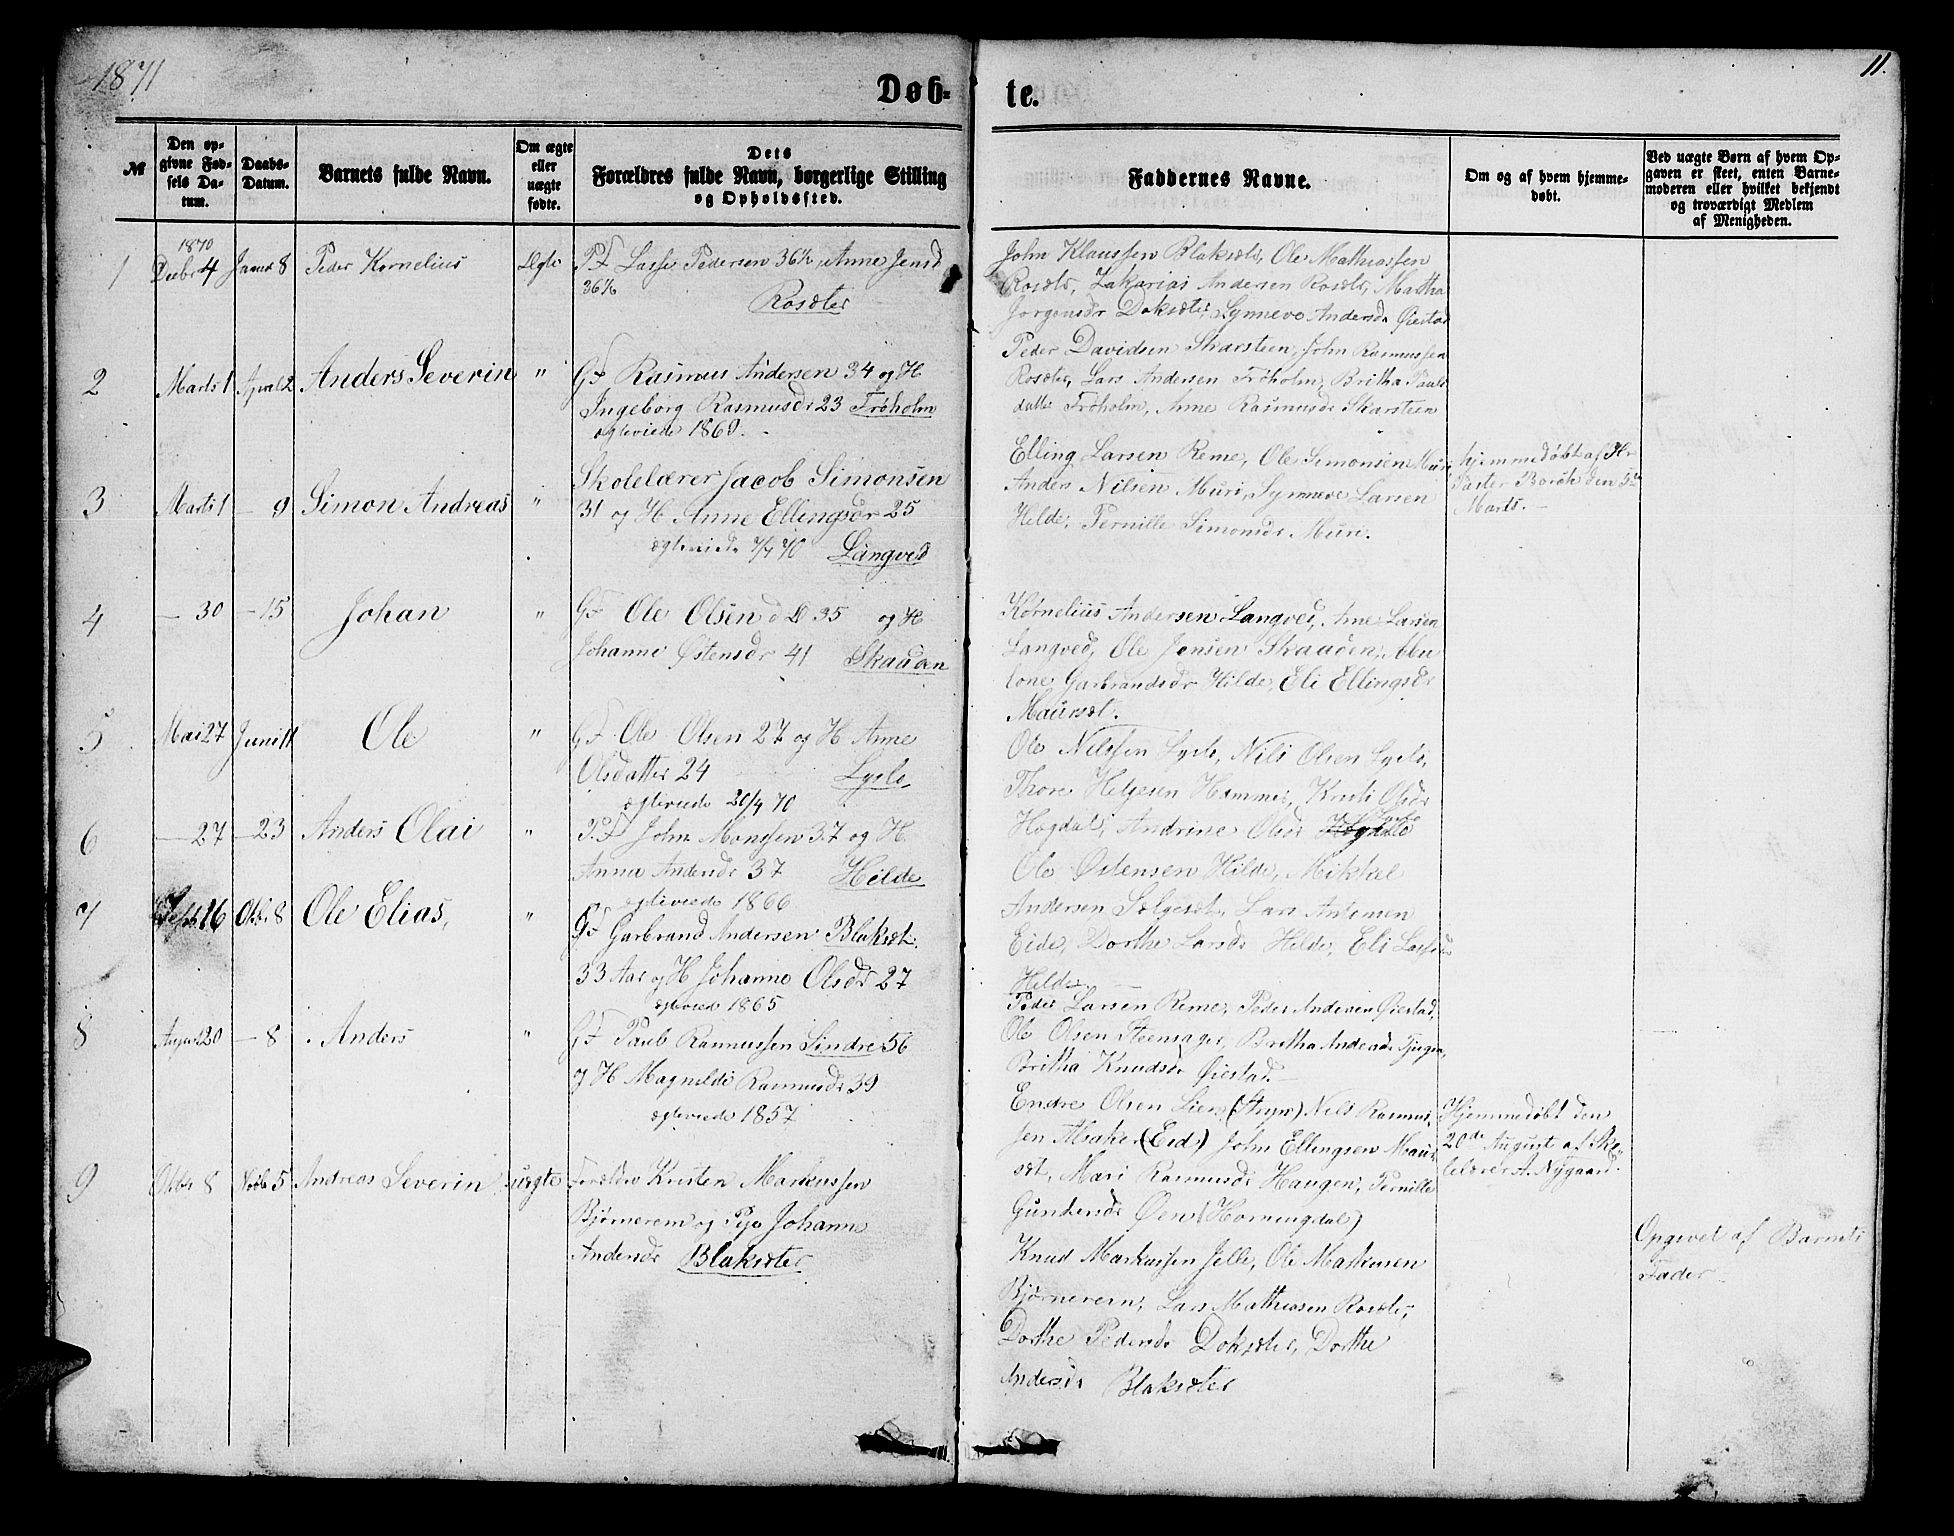 1871
Døb-
te.
11.
№
Den op-
givne Fød-
sels Da-
tum.
Daabs-
Datum.
Barnets fulde Navn.
Om ægte
eller
uægte
fødte.
Dets
Forældres fulde Navn, borgerlige Stilling
og Opholdssted.
Faddernes Navne.
Om og af hvem hjemme-
døbt.
Ved uægte Børn af hvem Op-
gaven er skeet, enten Barne-
moderen eller hvilket bekjendt
og troværdigt Medlem
af Menigheden.
1870
1 Decbr 4 Januar 8 Peder Kornelius Ægte P.F. Lasse Pedersen 36½, Anne Jensd
36½
Rosæter
John Klaussen Blaksæter, Ole Mathiassen
Rosæter, Zakarias Andersen Rosæter, Martha
Jørgensdr Doksæter, Synneve Andersdr Øiestad
2 Marts 1 April 2 Anders Severin " GF Rasmus Andersen 34 og H
Ingeborg Rasmusdr 23 Frøholm
ægteviede 1869.
Peder Davidsen Skarsteen, John Rasmussen
Rosæter, Lars Andersen Frøholm, Britha Pauls
datter Frøholm, Anne Rasmusdr Skarsteen
3 Marts 1 — 9 Simon Andreas " Skolelærer Jacob Simonsen
31 og H Anne Ellingsdr 25
ægteviede 7/4 70 Langved
Elling Larsen Reme, Ole Simonsen Muri
Anders Nilsen Muri, Synneve Larsen
Hilde, Pernille Simonsdr Muri.
hjemmedøbt af Hr
Pastor Borch den 5te
Marts.
4 — 30 — 15 Johan " GF Ole Olsen d. D 35 og H
Johanne Østensdr 41 Skauden
Kornelius Andersen Langved, Ane Larsen
Langved, Ole Jensen Skauden, Abe
lone Garbrandsdr Hilde, Eli Ellingsdr
Maursæt.
5 Mai 27 Juni 11 Ole " GF Ole Olsen 27 og H Anne
Olsdatter 24 Lysle
ægteviede 20/4 70
Ole Nilssen Lysle, Nils Olsen Lysle,
Thore Helgesen Hammer, Kristi Olsdr
Hogdal, Andrine Olsdr
6 — 27 — 23 Anders Olai " P.F. John Monssen 37 og H.
Anna Andersdr 37 Hilde
ægteviede 1866
Ole Østensen Hilde, Mikkel
Andersen Sølgesæt, Lars Antonsen
Eide, Dorthe Larsdr Hilde, Eli Lassedr
Hilde.
7 Septb. 16 Okt. 8 Ole Elias, " GF Garbrand Andersen Blaksæt.
33 Aar og H Johanne Olsdr 27
ægteviede 1865
Peder Larsen Reme, Peder Andersen Øiestad,
Ole Olsen Steensager, Britha Andersdr
Britha Knudsdr Øiestad.
8 August 20 — 8 Anders " GF Paul Rasmussen Sindre 56
og H Magnilde Rasmusdr 39
ægteviede 1857
Endre Olsen Lien (Stryn) Nils Rasmus
sen Alsaker (Eid) John Ellingsen Maur
sæt, Mari Rasmusdr Haugen, Pernille
Gundersdr Øen (Horningdal)
Hjemmedøbt den
20de August af Sko
lelærer A. Nygaard.
9 Oktbr 8 Novb 5 Andreas Severin uægte Forældre Kristen Markussen
Bjørnerem og Pige Johanne
Andersdr Blaksæter
Knud Markussen Jelle, Ole Markusen
Bjørnerem, Lars Mathiasen Rosæter,
Dorthe Pedersdr Doksæter, Dorthe
Andersdr Blaksæter
Opgivet af Barnets
Fader